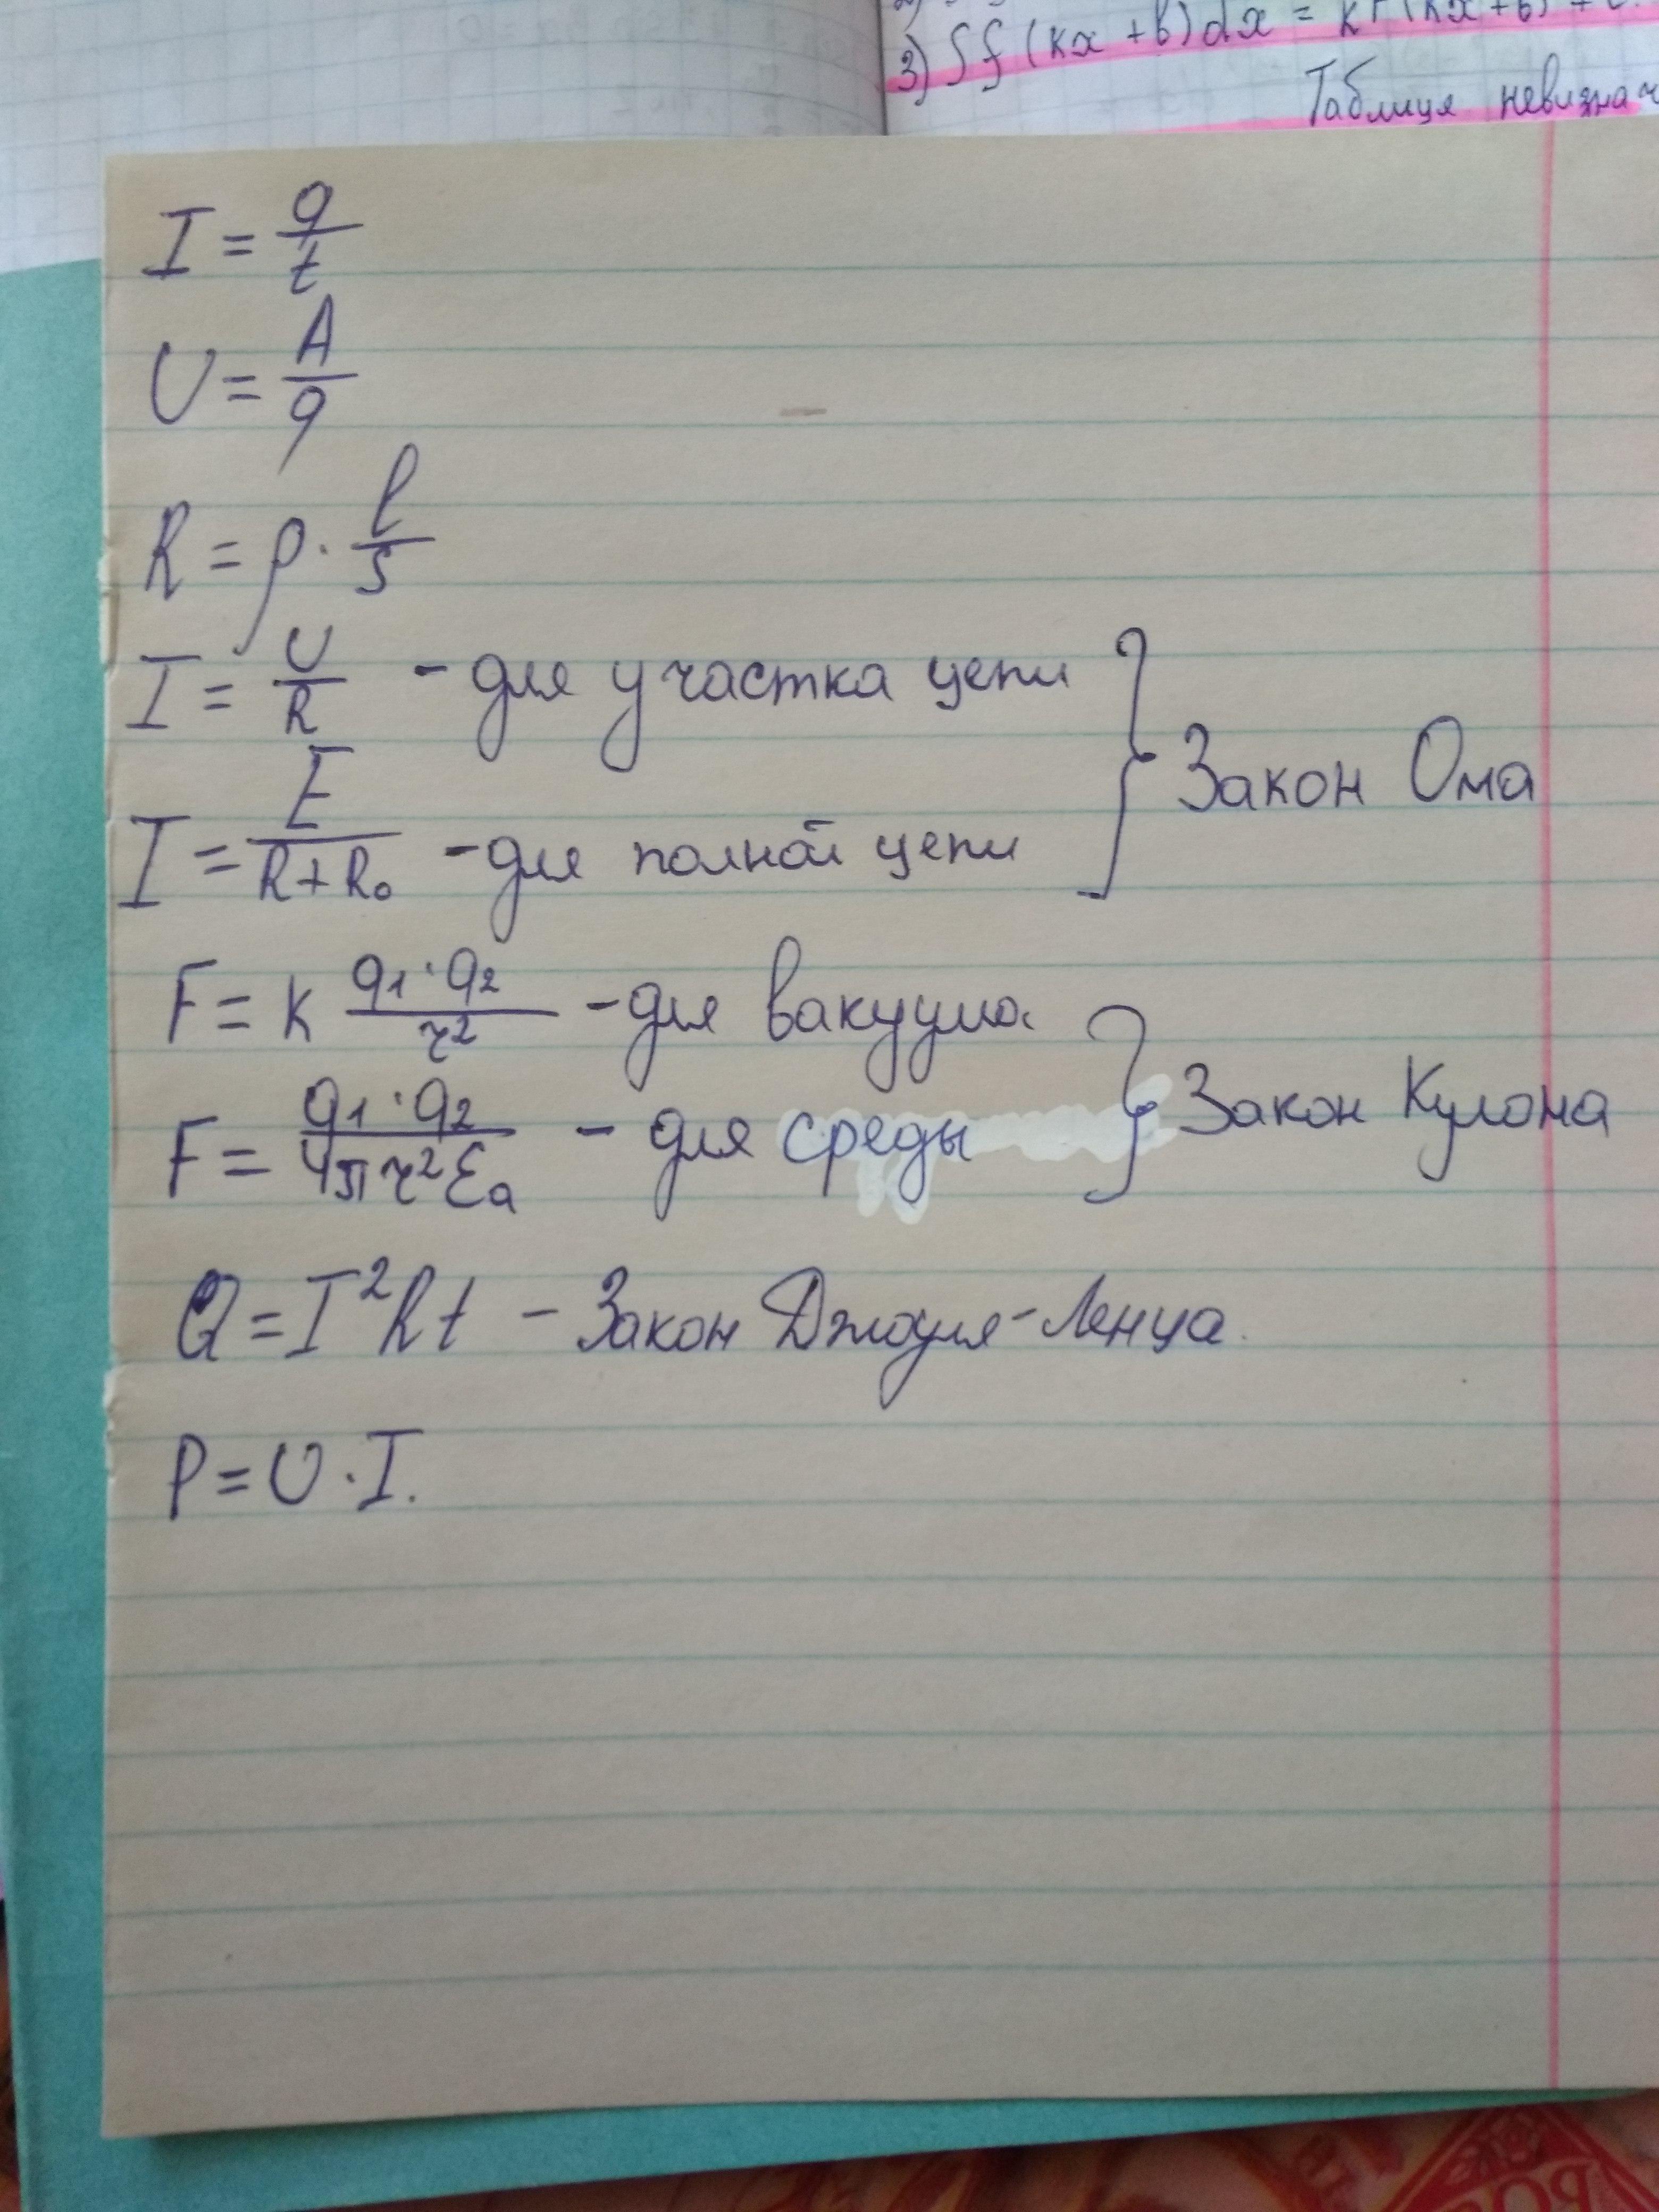 3) ∫f(kx+b)dx = kF(kx+b)+c
Таблиця невизнач
I = q/t
U = A/q
R = ρ · l/s
I = U/R - для участка цепи
I = E/(R+R₀) - для полной цепи
} Закон Ома
F = k q₁·q₂/r² - для вакуума
F = q₁·q₂/4πr²εₐ - для среды
} Закон Кулона
Q = I²Rt - Закон Джоуля-Ленца.
P = U · I.